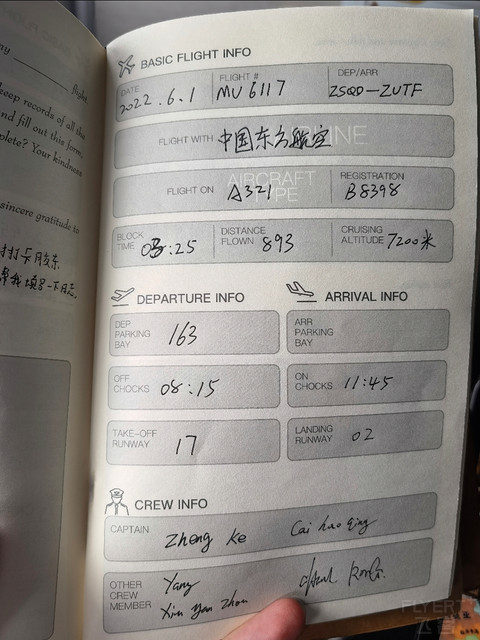 ny ______ flight.
keep records of all the
nd fill out this form,
plete? Your kindness
sincere gratitude to
BASIC FLIGHT INFO
DATE 2022.6.1 FLIGHT # MU6117 DEP/ARR ZSQD-ZUTF
FLIGHT WITH 中国东方航空
FLIGHT ON AIRCRAFT TYPE A321 REGISTRATION B8398
BLOCK TIME 03:25 DISTANCE FLOWN 893 CRUISING ALTITUDE 7200米
DEPARTURE INFO
ARRIVAL INFO
DEP PARKING BAY 163
ARR PARKING BAY
OFF CHOCKS 08:15
ON CHOCKS 11:45
TAKE-OFF RUNWAY 17
LANDING RUNWAY 02
CREW INFO
CAPTAIN Zheng Ke Cai hao qing
OTHER CREW MEMBER Yang
Xin Yan Zhou
FLYERT